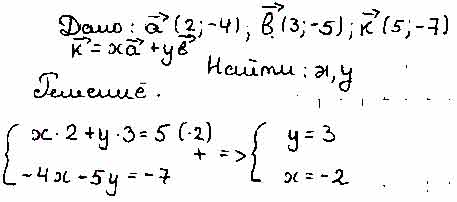 Дано: a⃗ (2;-4); в⃗ (3;-5); к⃗ (5;-7)
к⃗ = xa⃗ + yв⃗
Найти: x, y
Решение.
{ x·2+y·3=5 (·2) + => { y=3
{ -4x-5y=-7 { x=-2